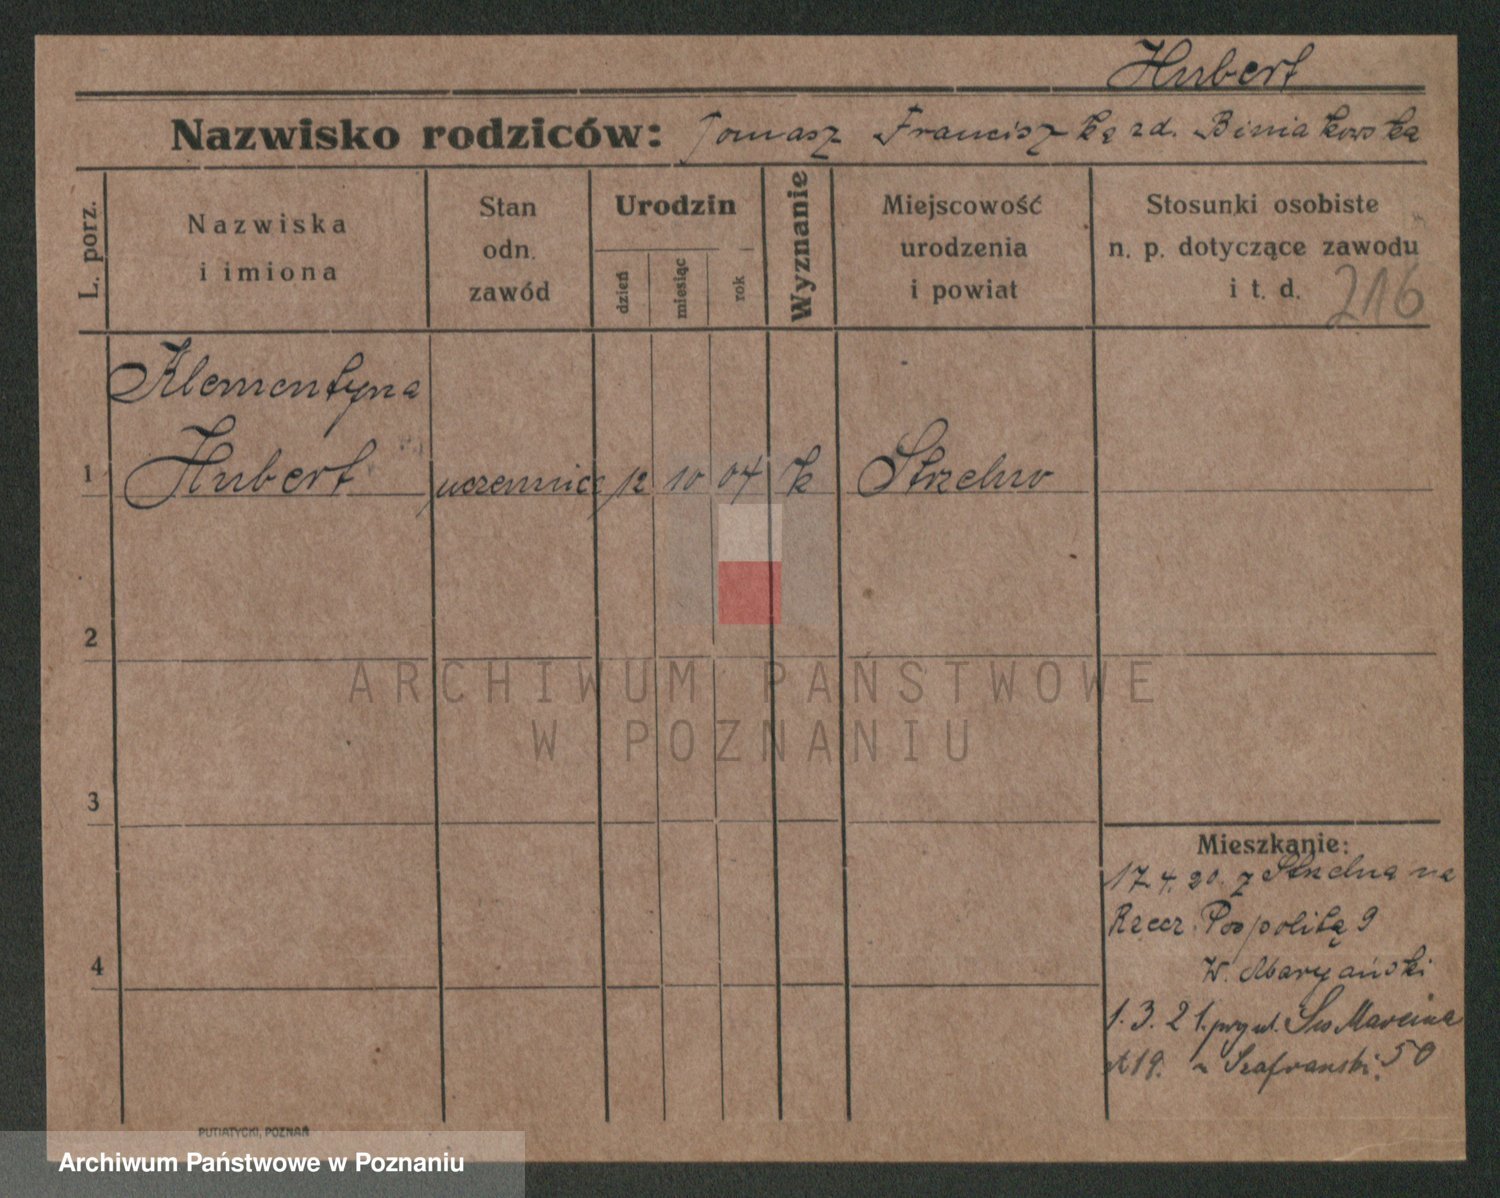 Hubert
Nazwisko rodziców: Tomasz Franciszka zd. Biniakowska
L. porz.
Nazwiska
i imiona
Stan
odn.
zawód
Urodzin
dzień
miesiąc
rok
Wyznanie
Miejscowość
urodzenia
i powiat
Stosunki osobiste
n. p. dotyczące zawodu
i t. d.
216
Klementyna
1 Hubert uczennica 12 10 04 k Strzelno
2
ARCHIWUM PAŃSTWOWE
W POZNANIU
3
Mieszkanie:
17. 4. 20. z Strzelna na
Rzecz. Pospolitą 9
4
W. Maryański
1. 3. 21. przy ul. Św Marcina
50
19. Szafranski.
PUTIATYCKI, POZNAŃ
Archiwum Państwowe w Poznaniu